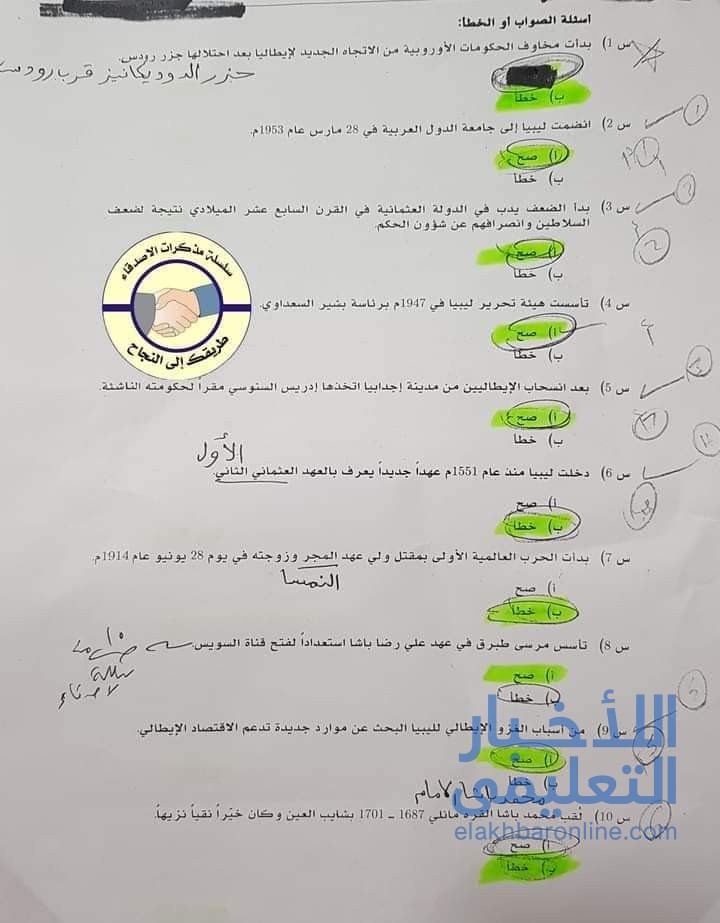 أسئلة الصواب أو الخطأ:
س 1) بدأت مخاوف الحكومات الأوروبية من الاتجاه الجديد لإيطاليا بعد احتلالها جزر رودس.
جزر الدوديكانيز قرب رودس
ب) خطأ
س 2) انضمت ليبيا إلى جامعة الدول العربية في 28 مارس عام 1953م.
أ) صح
ب) خطأ
س 3) بدأ الضعف يدب في الدولة العثمانية في القرن السابع عشر الميلادي نتيجة لضعف
السلاطين وانصرافهم عن شؤون الحكم.
أ) صح
ب) خطأ
سلسلة مذكرات الاصدقاء
طريقك إلى النجاح
س 4) تأسست هيئة تحرير ليبيا في 1947م برئاسة بشير السعداوي.
أ) صح
ب) خطأ
س 5) بعد انسحاب الإيطاليين من مدينة إجدابيا اتخذها إدريس السنوسي مقراً لحكومته الناشئة.
أ) صح
ب) خطأ
الأول
س 6) دخلت ليبيا منذ عام 1551م عهداً جديداً يعرف بالعهد العثماني الثاني.
أ) صح
ب) خطأ
س 7) بدأت الحرب العالمية الأولى بمقتل ولي عهد المجر وزوجته في يوم 28 يونيو عام 1914م.
النمسا
أ) صح
ب) خطأ
س 8) تأسس مرسى طبرق في عهد علي رضا باشا استعداداً لفتح قناة السويس.
أ) صح
ب) خطأ
س 9) من أسباب الغزو الإيطالي لليبيا البحث عن موارد جديدة تدعم الاقتصاد الإيطالي.
أ) صح
ب) خطأ
محمد باشا الامام
س 10) لُقب محمد باشا القره مانلي 1687 ــ 1701 بشايب العين وكان خيّراً نقياً نزيهاً.
أ) صح
ب) خطأ
الأخبار
التعليمي
elakhbaronline.com